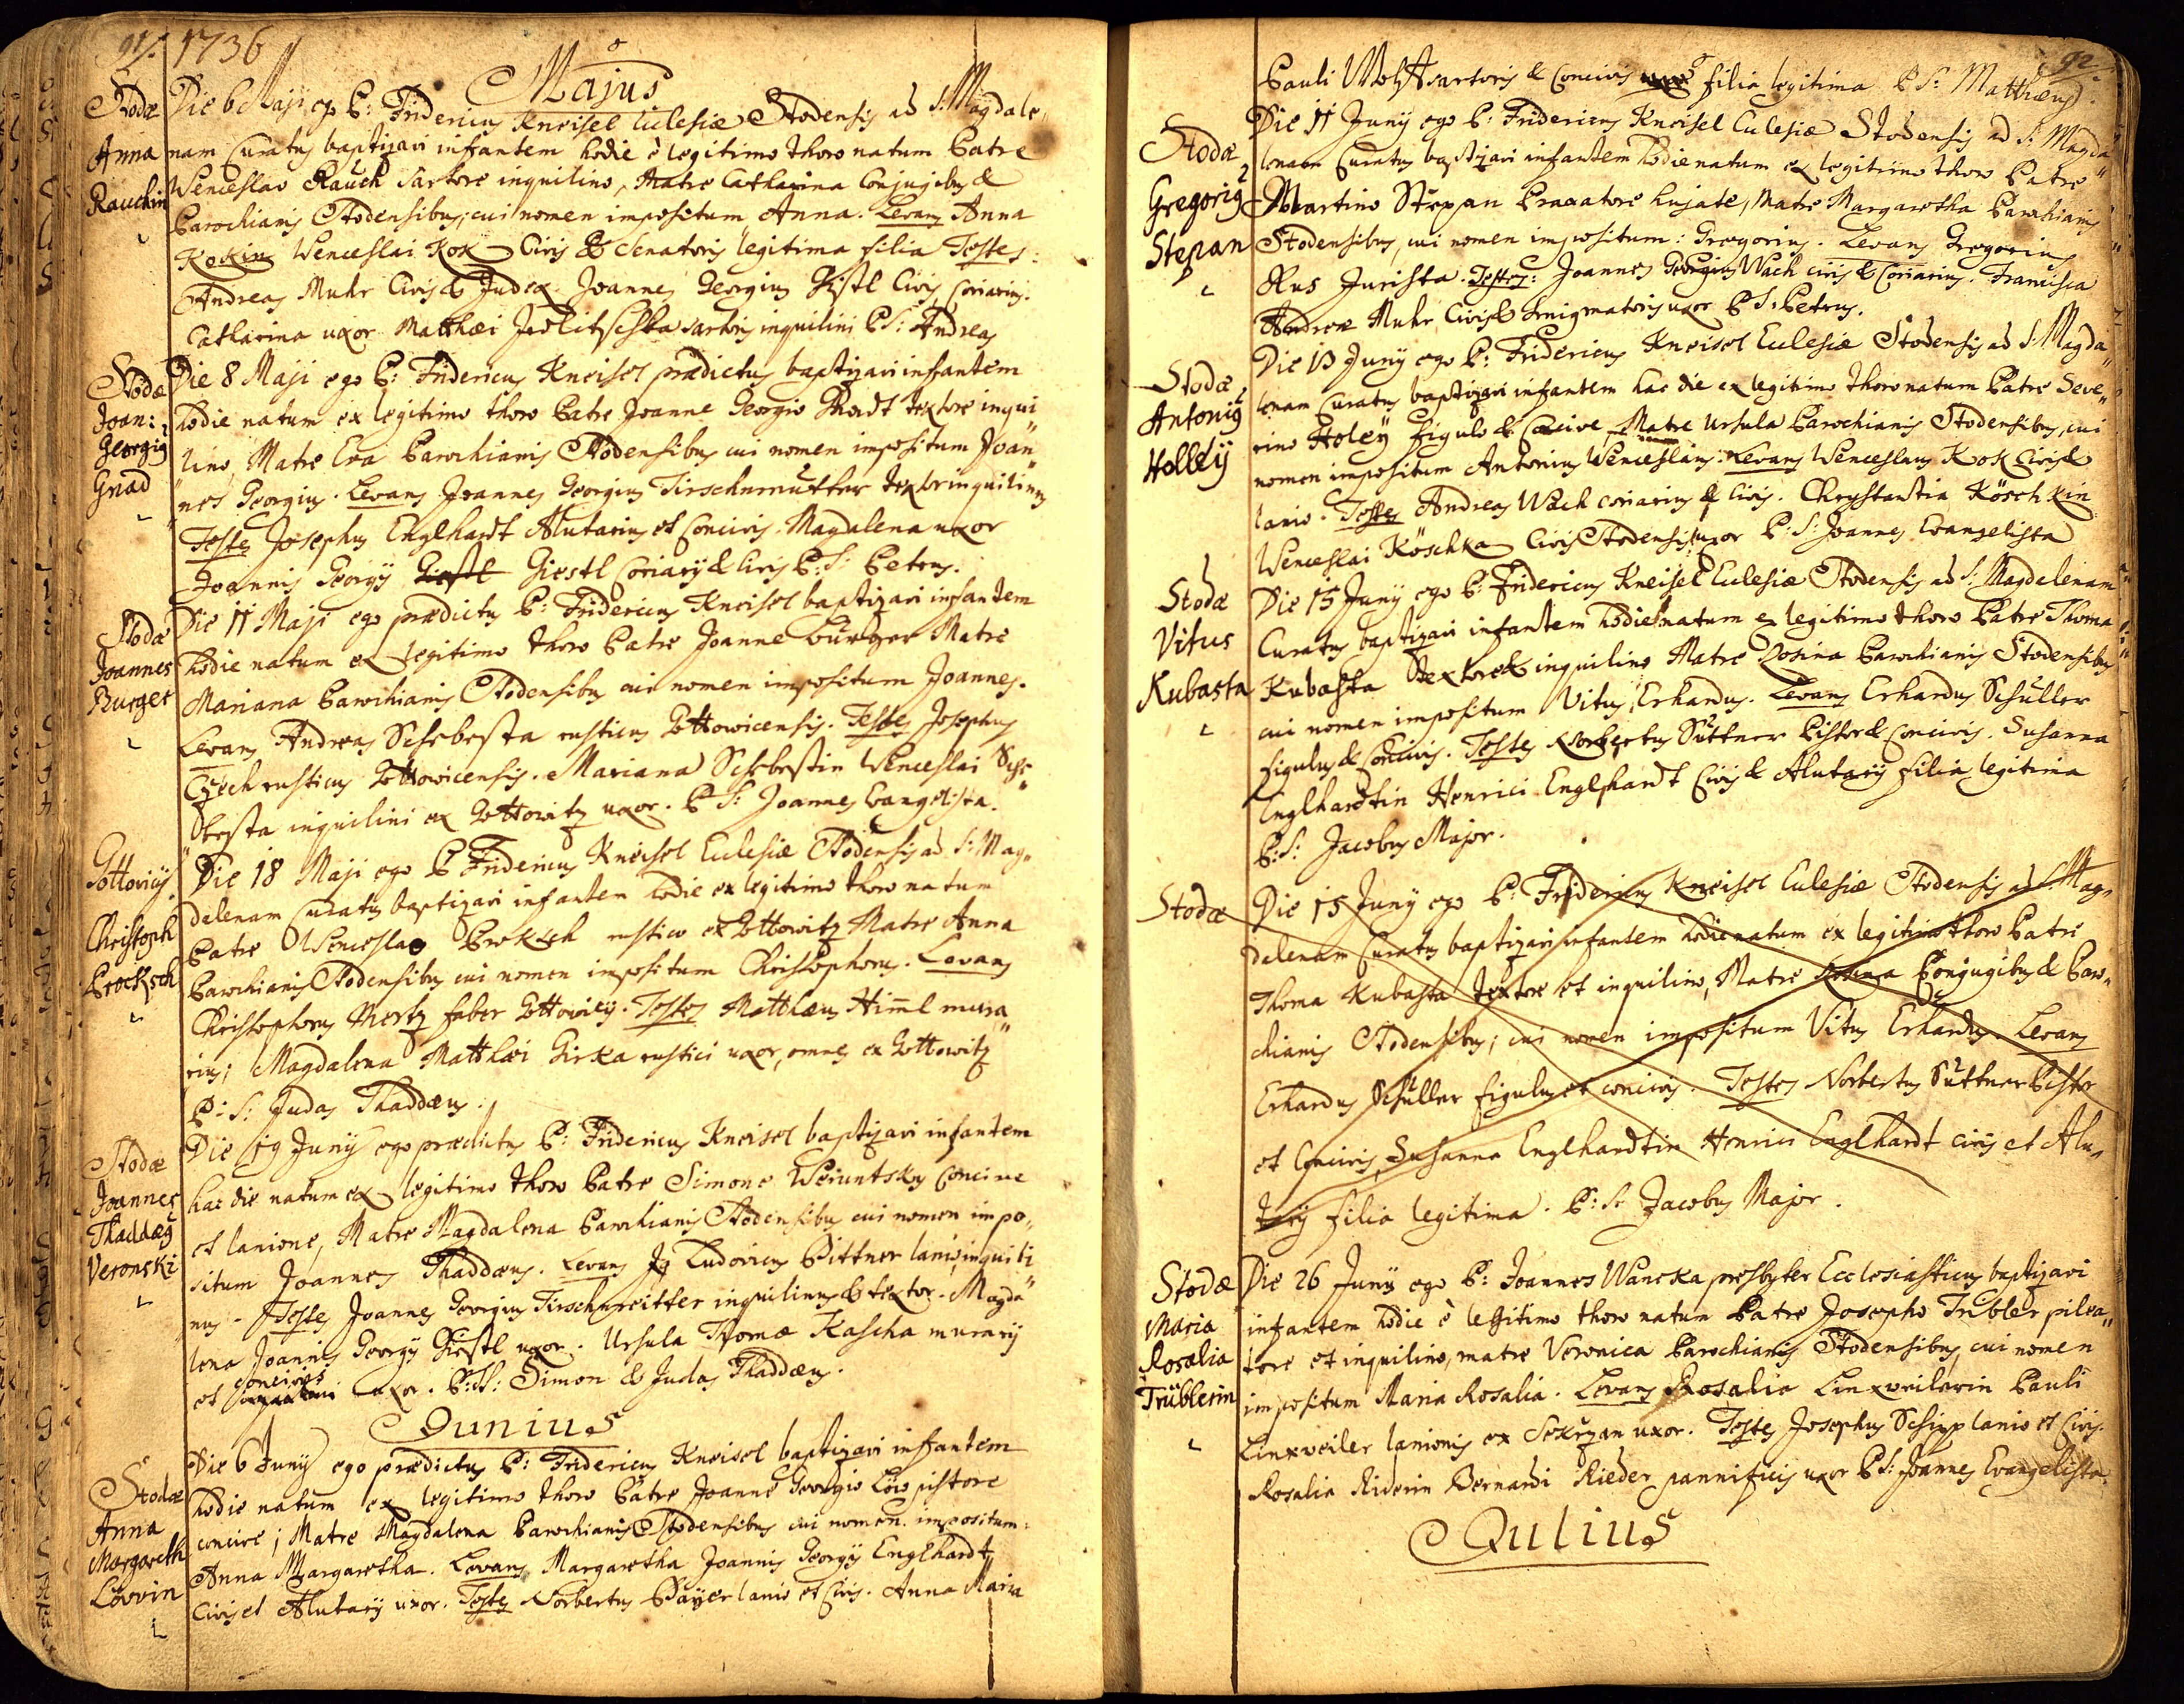 91. 1736
Majus
Stodæ
Anna
Rauchin
Die 6 Maji ego P: Fridericus Kneisel Eclesiæ Stodensis ad S: Magdale,,
nam Curatus baptizavi infantem hodie è legitimo thoro natum Patre
Wenceslao Rauch sartore inquilino, Matre Catharina Conjugibus &
Parochianis Stodensibus; cui nomen impositum Anna. Levans Anna
Kokin Wenceslai Kok Civis & Senatoris legitima filia Testes:
Andreas Muhr Civis & Judex Joannes Georgius Gistl Civis Coriarius.
Catharina uxor Matthæi sartoris inquilini P S: Andreas
Stodæ
Joan:
Georgius
Gnad
Die 8 Maji ego P: Fridericus Kneisel prædictus baptizavi infantem
hodie natum ex legitimo thoro Patre Joanne Georgio textore inqui
lino, Matre Eva Parochianis Stodensibus cui nomen impositum Joan,,
nes Georgius. Levans Joannes Georgius Tirschnreutter textor inquilinus
Testes Josephus Englhardt Alutarius et Concivis. Magdalena uxor
Joannis Georgÿ Giestl Giestl Coriarÿ & Civis P: S: Petrus.
Stodæ
Joannes
Burger
Die 11 Maji ego prædictus P: Fridericus Kneisel baptizavi infantem
hodie natum ex legitimo thoro Patre Joanne Burger Matre
Mariana Parochianis Stodensibus cui nomen impositum Joannes.
Levans Andreas Schebesta rusticus Gottowicensis. Testes Josephus
Czech rusticus Gottowicensis. Mariana Schebestin Wenceslai Sche
besta inquilini ex Gottowitz uxor. P S: Joannes Evangelista.
Gottovicÿ
Christoph
Brocksch
Die 18 Maji ego P Fridericus Kneisel Eclesiæ Stodensis ad S: Mag,,
dalenam Curatus baptizavi infantem hodie ex legitimo thoro natum
Patre Wenceslao Broksch rustico ex Gottowitz Matre Anna
Parochianis Stodensibus cui nomen impositum Christophorus. Levans
Christophorus Mertz faber Gottovicÿ. Testes Matthæus Himl mura
rius; Magdalena Matthæi Girka rustici uxor, omnes ex Gottowitz
P: S: Judas Thaddæus.
Stodæ
Joannes
Thaddæus
Veronski
Die 19 Junÿ ego prædictus P: Fridericus Kneisel baptizavi infantem
hac die natum ex legitimo thoro Patre Simone Weruntsky Concive
et lanione, Matre Magdalena Parochianis Stodensibus cui nomen impo,,
situm Joannes Thaddæus. Levans Ludovicus Bittner lanio, inquili
nus. Testes Joannes Georgius Tirschnreitter inquilinus & textor. Magda
lena Joannis Georgÿ Giestl uxor. Ursula Thomæ Kascha murarÿ
et concivis uxor. P: S: Simon & Judas Thaddæus.
Junius
Stodæ
Anna
Margareth
Lövvin
Die 6 Junÿ ego prædictus P: Fridericus Kneisel baptizavi infantem
hodie natum ex legitimo thoro Patre Joanne Georgio Löw pistore
concive; Matre Magdalena Parochianis Stodensibus cui nomen impositum
Anna Margaretha. Levans Margaretha Joannis Georgÿ Englhardt
Civis et Alutarÿ uxor. Testes Norbertus Payer lanio et Civis. Anna Maria
92
Pauli Wolf sartoris & Concivis filia legitima P S: Matthæus.
Stodæ
Gregorius
Stepan
Die 11 Junÿ ego P: Fridericus Kneisel Eclesiæ Stodensis ad S: Magda,,
lenam Curatus baptizavi infantem hodie natum ex legitimo thoro Patre
Martino Stepan Braxatore hujate, Matre Margaretha Parochianis
Stodensibus, cui nomen impositum: Gregorius. Levans Gregorius
Rus Jurista. Testes: Joannes Georgius Wach civis & Coriarius. Francisca
Andreæ Muhr Civis & uxor P S: Petrus.
Stodæ
Antonius
Holleÿ
Die 13 Junÿ ego P: Fridericus Kneisel Eclesiæ Stodensis ad S: Magda,,
lenam Curatus baptizavi infantem hac die ex legitimo thoro natum Patre Seve,,
rino Holeÿ figulo & Concive, Matre Ursula Parochianis Stodensibus, cui
nomen impositum Antonius Wenceslaus. Levans Wenceslaus Kok Civis &
lanio. Testes Andreas Wach coriarius & Civis. Chrystantia Köschkin
Wenceslai Köschka Civis Stodensis uxor P: S: Joannes Evangelista
Stodæ
Vitus
Kubasta
Die 15 Junÿ ego P: Fridericus Kneisel Eclesiæ Stodensis ad S: Magdalenam
Curatus baptizavi infantem hodie natum ex legitimo thoro Patre Thoma
Kubasta textore & inquilino Matre Rosina Parochianis Stodensibus
cui nomen impositum Vitus, Erhardus. Levans Erhardus Schuller
figulus & Concivis. Testes Norbertus Süttner Pistor & Concivis. Susanna
Englhardtin Henrici Englhardt Civis & Alutarÿ filia legitima
P: S: Jacobus Major.
Stodæ
Die 15 Junÿ ego P: Fridericus Kneisel Eclesiæ Stodensis ad S: Mag,,
dalenam Curatus baptizavi infantem hodie natum ex legitimo thoro Patre
Thoma Kubasta textore et inquilino, Matre Rosina Conjugibus & Paro,,
chianis Stodensibus; cui nomen impositum Vitus Erhardus. Levans
Erhardus Schuller figulus et concivis. Testes Norbertus Süttner Pistor
et Concivis, Susanna Englhardtin Henrici Englhardt civis et Alu,,
tarÿ filia legitima. P: S: Jacobus Major.
Stodæ
Maria
Rosalia
Trüblerin
Die 26 Junÿ ego P: Joannes Wancka presbyter Ecclesiasticus baptizavi
infantem hodie è legitimo thoro natum Patre Josepho Tribler pilea,,
tore et inquilino, matre Veronica Parochianis Stodensibus, cui nomen
impositum Maria Rosalia. Levans Rosalia Linxweilerin Pauli
Linxweiler lanionis ex uxor. Testes Josephus Schipp lanio et Civis.
Rosalia Riderin Bernardi Rieder pannificis uxor P S: Joannes Evangelista.
Julius